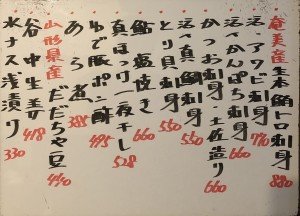 奄美産 生本鮪トロ刺身 880
活〆アワビ刺身 770
活〆かんぱち刺身 660
かつお刺身 土佐造り 660
活〆真鯛刺身 550
とり貝刺身 550
鮎塩焼き 660
真ほっけ一夜干し 528
ゆで豚ポン酢 495
あら煮 385
山形県産 だだちゃ豆 440
谷中生姜 418
水ナス浅漬り 330